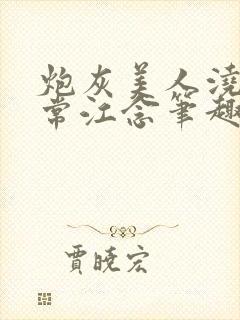 炮灰美人浇
常江念笔趣
贾晓宏